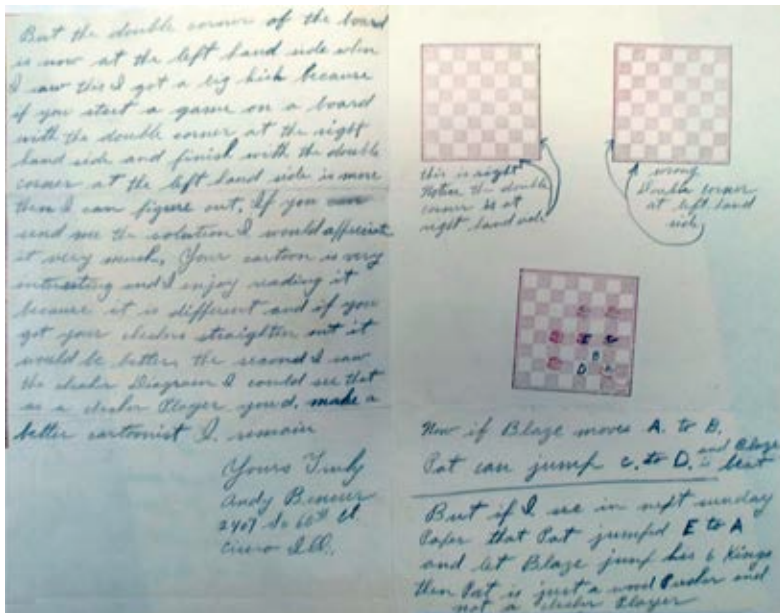 But the double corner of the board
is now at the left hand side when
I saw this I got a big kick because
if you start a game on a board
with the double corner at the right
hand side and finish with the double
corner at the left hand side is more
then I can figure out. If you
send me the solution I would appreciate
it very much. Your cartoon is very
interesting and I enjoy reading it
because it is different and if you
get your checkers straighten out it
would be better, the second I saw
the checker Diagram I could see that
as a checker Player you'd. make a
better cartoonist I. remain
Yours Truly
Andy
2407 So 60th Ct
Cicero Ill.
this is right
Notice the double
corner is at
right hand side
wrong
Double corner
at left hand
side
B
D
Now if Blaze moves A. to B.
Pat can jump C. to D. and Blaze
is beat
But if I see in next sunday
Paper that Pat jumped E to A
and let Blaze jump her 6 Kings
then Pat is just a wood Pusher and
not a checker Player